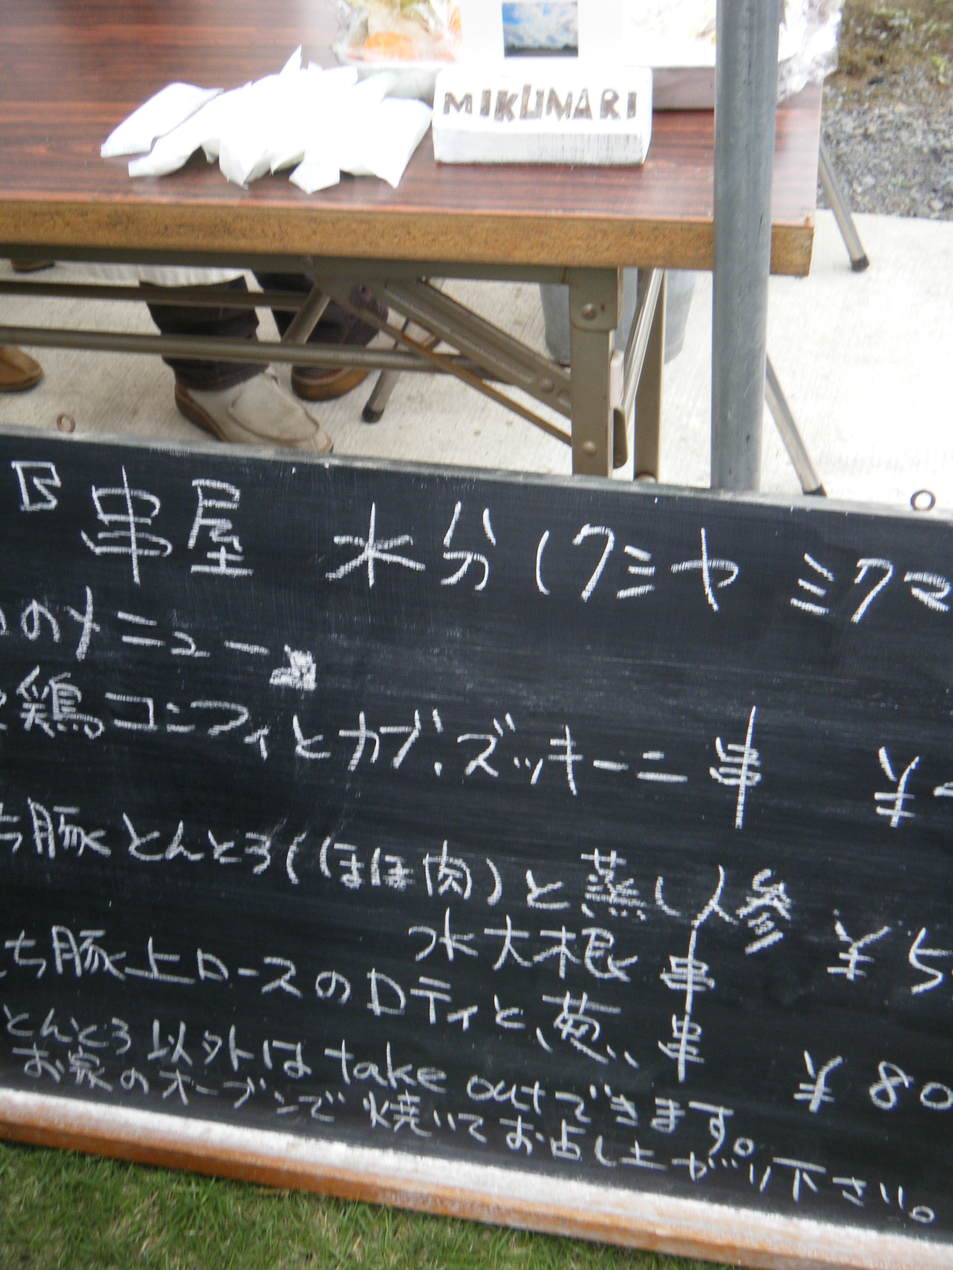 MIKUMARI
『串屋 水分(クシヤ ミクマ
のメニュー』
鶏コンフィとカブ、ズッキーニ串 ¥
豚とんとろ(ほほ肉)と蒸し人参
水大根串 ¥5
ち豚上ロースのロティと、葱、串 ¥80
とんとろ以外はtake outできます。
お家のオーブンで焼いてお占し上がり下さい。